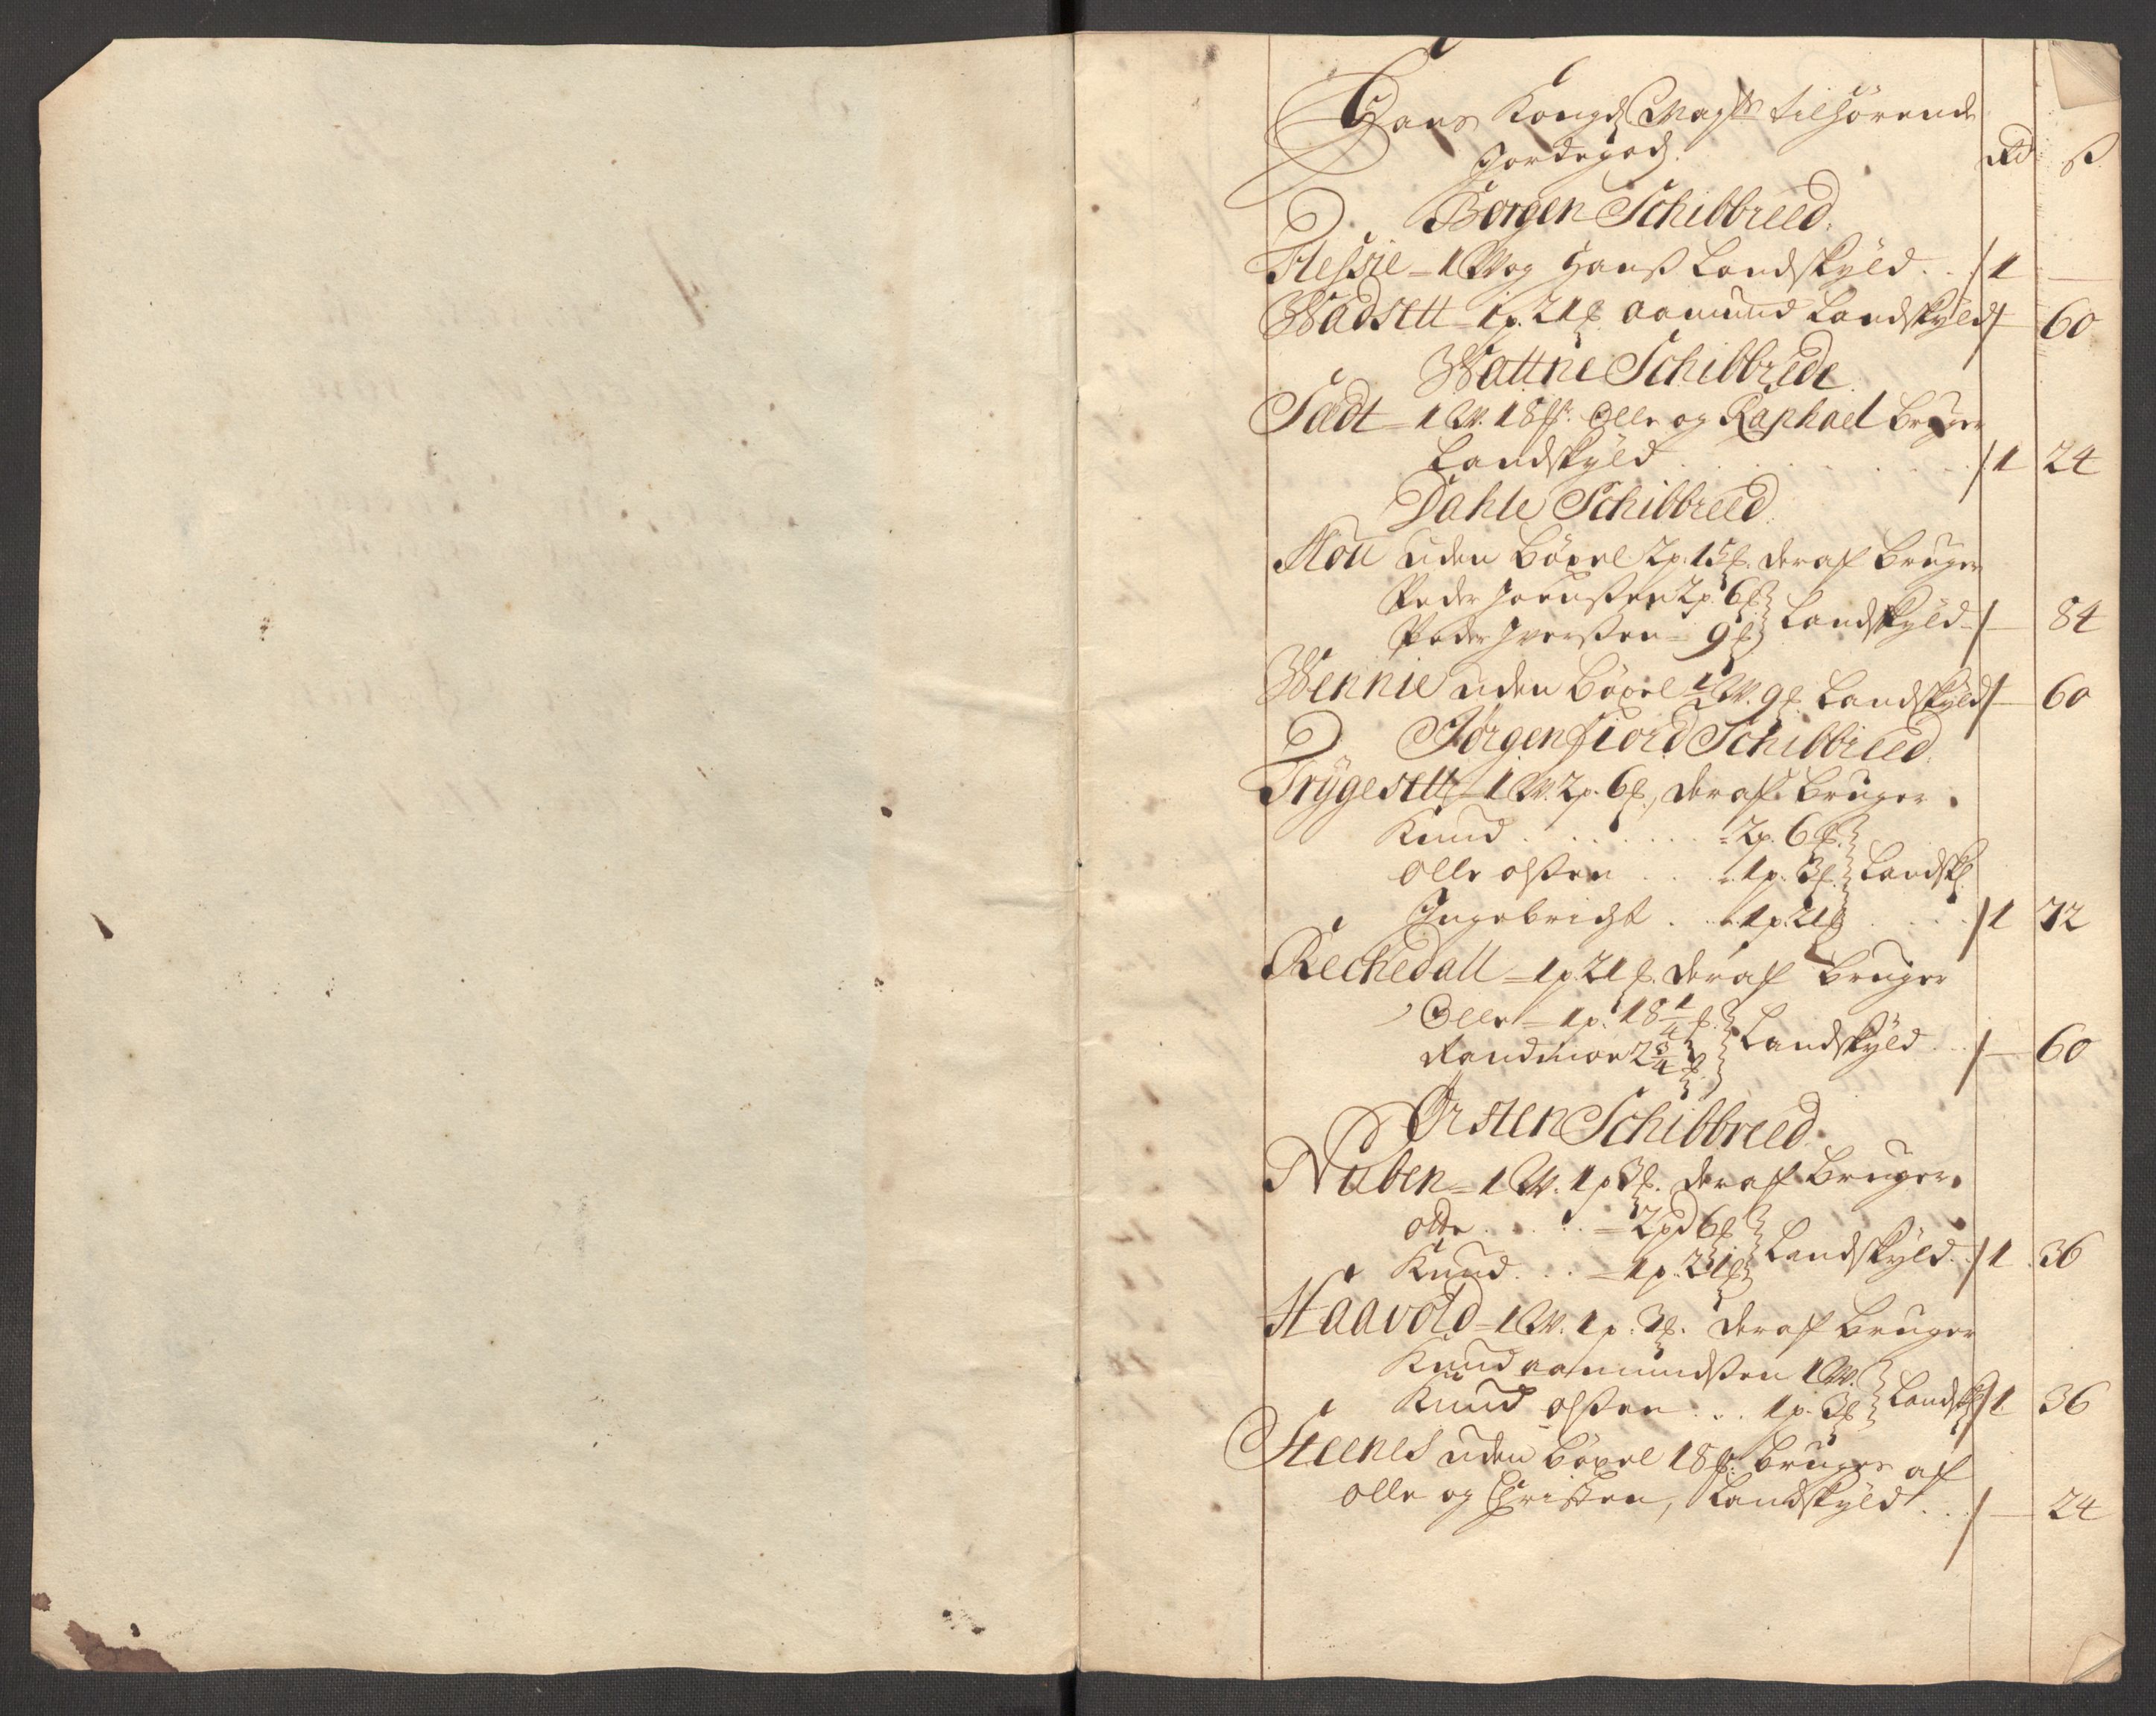 Hans Kongl Mayts tilhørende
Jordegods. Rd ß
Borgen Schibbreed.
Hessie - 1 Wog Hanß Landskyld . . 1 —
Wadsett - 1 p. 21 ℔ Aamund Landskyld — 60
Wattne Schibbrede
Sædt - 1 W. 18 ℔. Olle og Raphael bruger
Landskyld . . . 1 24
Dahle Schibbreed.
Hou uden böxel 2 p. 15 ℔. deraf bruger
Peder Joenßen 2 p. 6 ℔
Peder Iverßen - 9 ℔ Landskyld — 84
Wennie uden böxel 1 W. 9 ℔ Landskyld — 60
Jørgenfiord Schibbreed.
Trygesett - 1 W. 2 p. 6 ℔, deraf bruger
Knud . . . - 2 p. 6 ℔.
Olle olßen . . . 1 p. 3 ℔. Landsk
Ingebrigt . . . 1 p. 21 ℔ . . . 1 72
Rechedall - 1 p. 21 ℔. deraf bruger
Olle - 1 p. 18 1/4 ℔.
Randmoe 2 3/4 ℔ Landskyld . . — 60
Ørsten Schibbreed.
Nuben - 1 W. 1 p 3 ℔. deraf bruger
otte . . . - 2 pd 6 ℔
Knud . . . - 1 p. 21 ℔ Landskyld . . 1 36
Haavold - 1 W. 1 p. 3 ℔. deraf bruger
Knud aamundßen 1 W.
Knud olßen . . . 1 p. 3 ℔ Landsk 1 36
Steenes uden böxel 18 ℔. bruges af
olle og Christen, Landskyld . . — 24